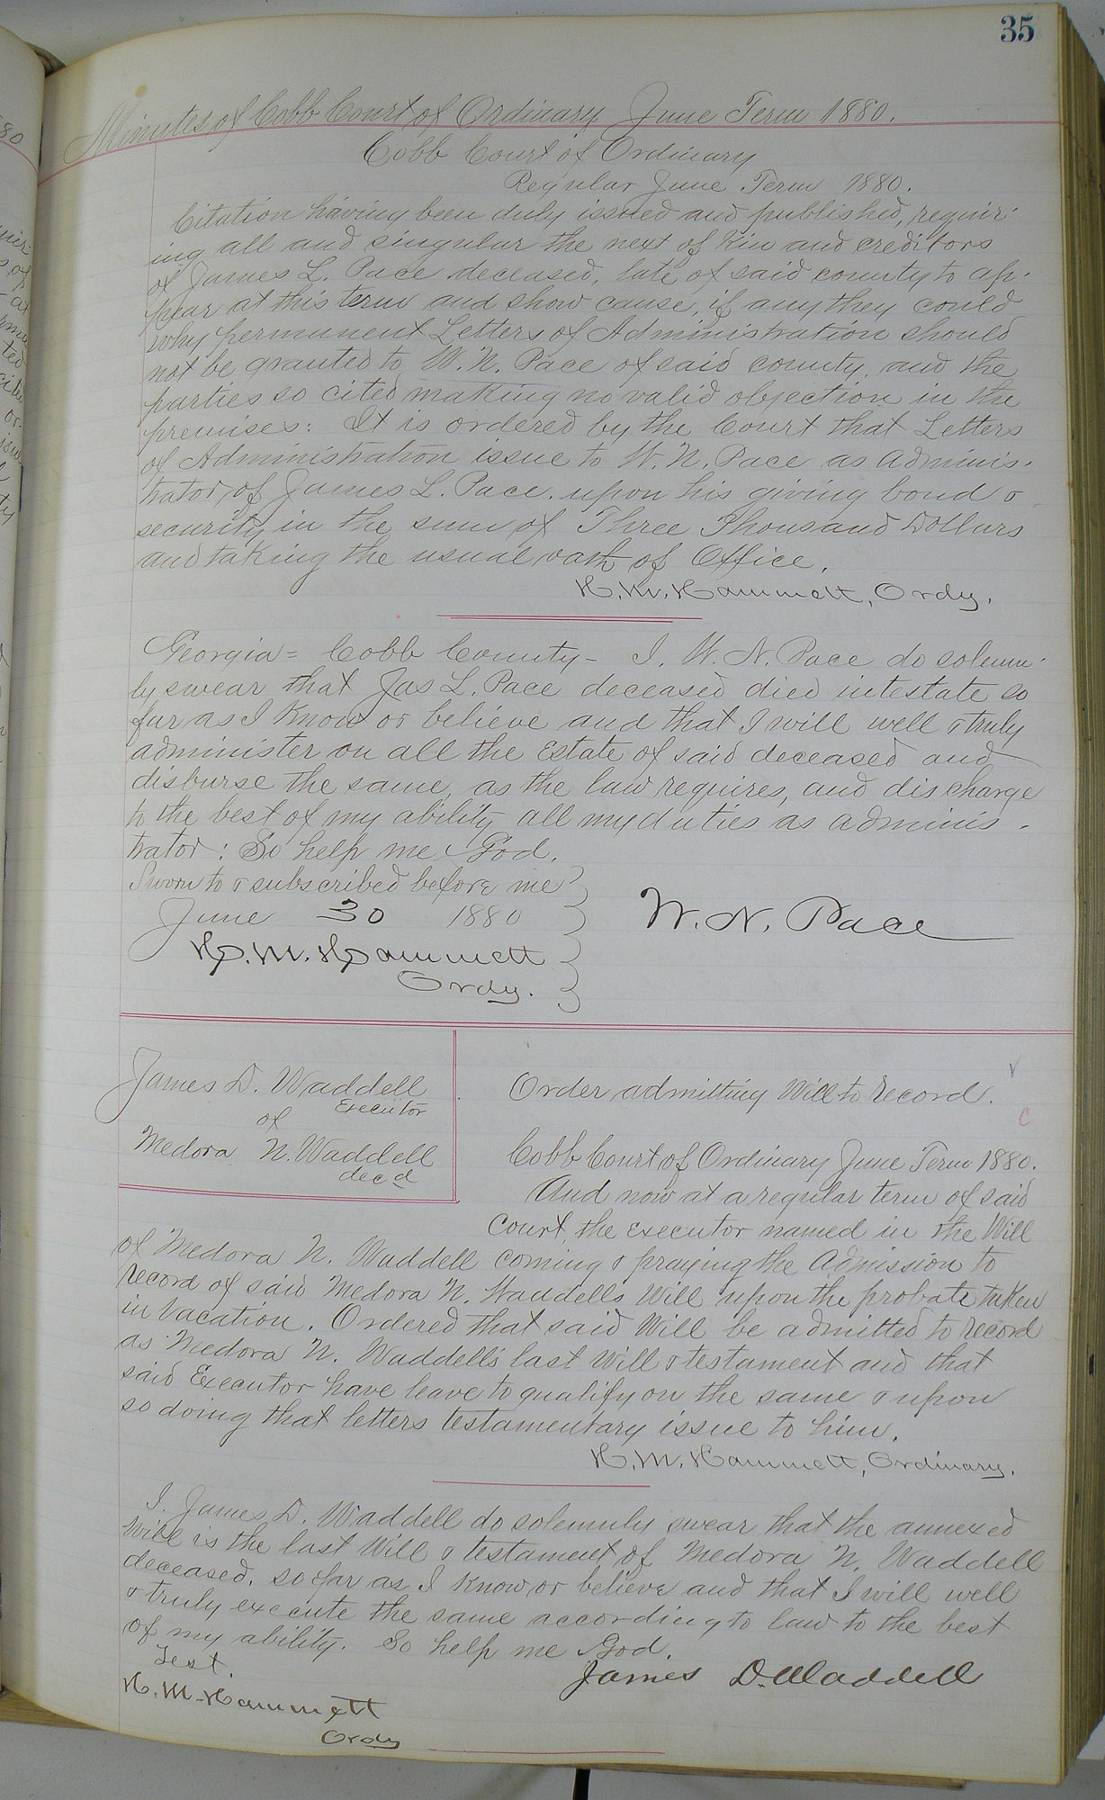 35
Minutes of Cobb Court of Ordinary June Term 1880.
Cobb Court of Ordinary
Regular June Term 1880.
Citation having been duly issued and published, requir-
ing all and singular the next of Kin and creditors
of James L. Pace deceased, late of said county to ap-
pear at this term and show cause, if any they could
why permanent Letters of Administration should
not be granted to W. N. Pace of said county, and the
parties so cited making no valid objection in the
premises: It is ordered by the Court that Letters
of Administration issue to W. N. Pace as adminis-
trator, of James L. Pace. upon his giving bond &
security in the sum of Three Thousand Dollars
and taking the usual oath of Office.
H. M. Hammett, Ordy.
Georgia = Cobb County - I. W. N. Pace do solemn-
ly swear that Jas L. Pace deceased died intestate so
far as I Know or believe and that I will well & truly
administer on all the Estate of said deceased and
disburse the same, as the law requires, and discharge
to the best of my ability all my duties as adminis-
trator: So help me God.
Sworn to & subscribed before me
June 30 1880
W. N. Pace
H. M. Hammett
Ordy.
James D. Waddell
Executor
of
Medora N. Waddell
decd
Order admitting Will to record.
Cobb Court of Ordinary June Term 1880.
And now at a regular term of said
Court, the executor named in the Will
of Medora N. Waddell coming & praying the Admission to
record of said Medora N. Waddells Will upon the probate taken
in Vacation. Ordered that said Will be admitted to record
as Medora N. Waddell's last Will & testament and that
said Executor have leave to qualify on the same & upon
so doing that letters testamentary issue to him.
H. M. Hammett, Ordinary.
I. James D. Waddell do solemnly swear that the annexed
Will is the last Will & testament of Medora N. Waddell
deceased. so far as I Know or believe and that I will well
& truly execute the same according to law to the best
of my ability. So help me God.
Test.
James D. Waddell
H. M. Hammett
Ordy